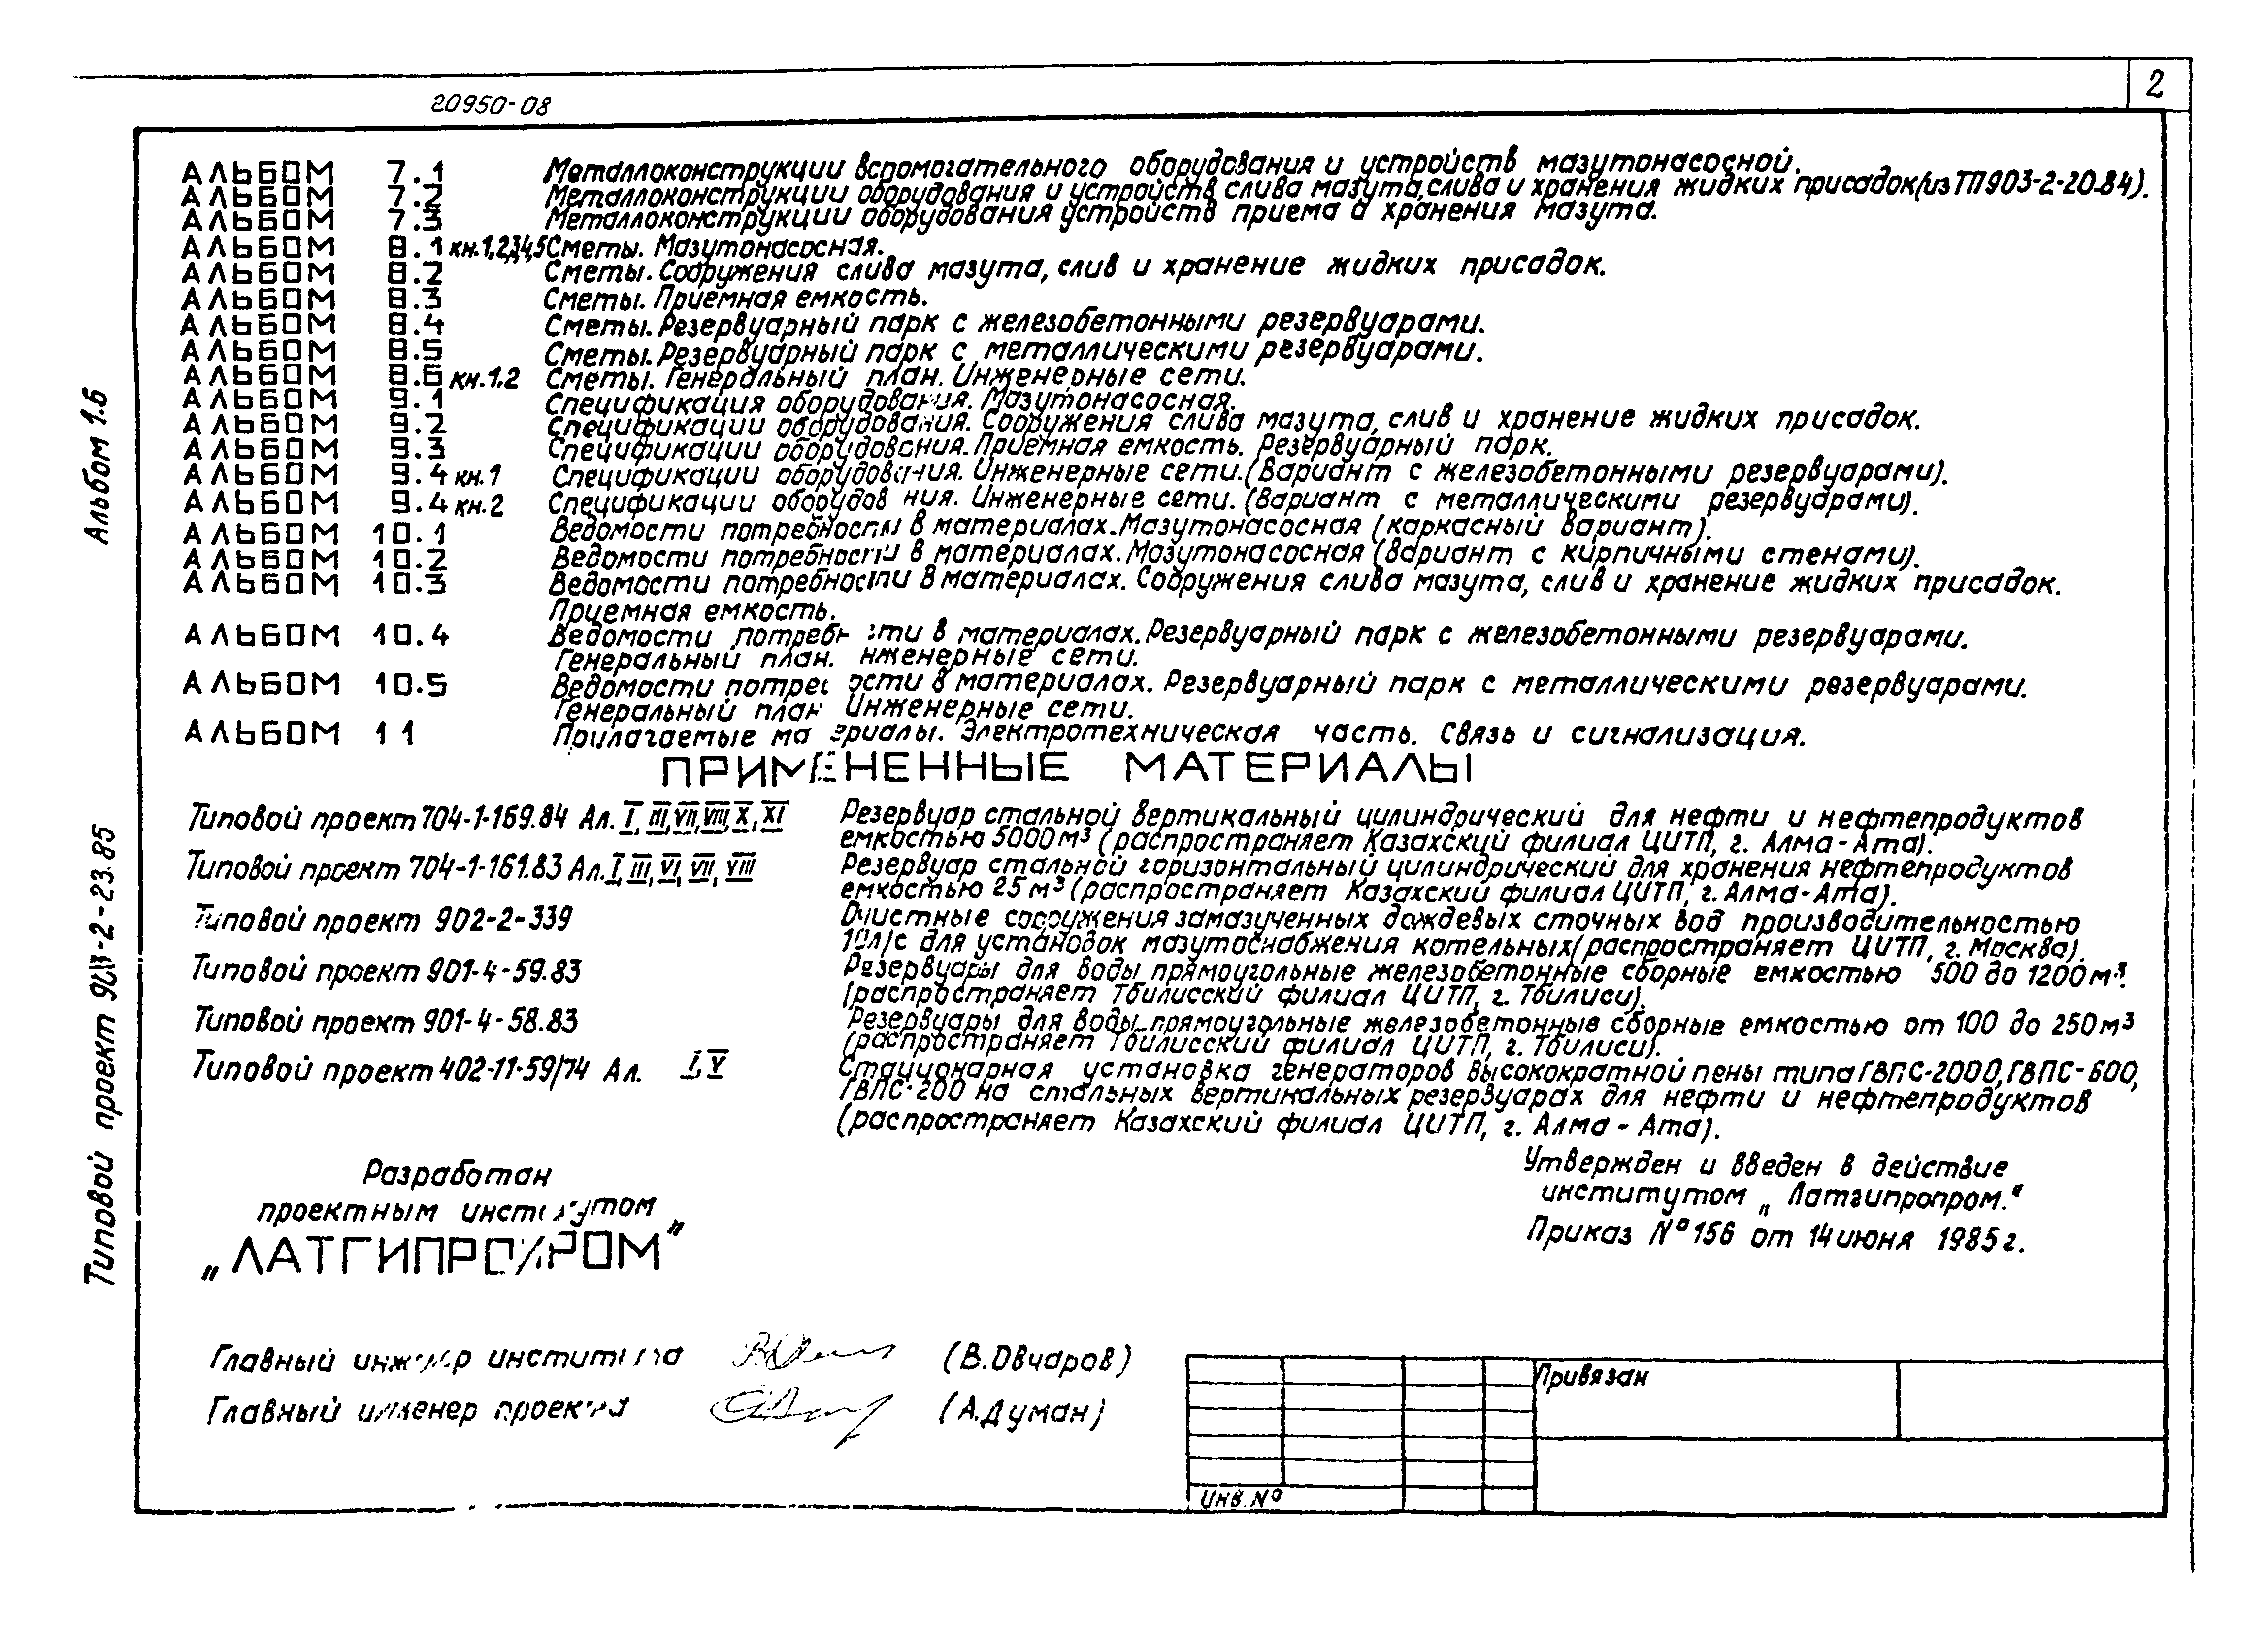 2
20950-08
АЛЬБОМ 7.1 Металлоконструкции вспомогательного оборудования и устройств мазутонасосной.
АЛЬБОМ 7.2 Металлоконструкции оборудования и устройств слива мазута, слива и хранения жидких присадок (из ТП903-2-20.84).
АЛЬБОМ 7.3 Металлоконструкции оборудования устройств приема и хранения мазута.
АЛЬБОМ 8.1 кн.1,2,3,4,5 Сметы. Мазутонасосная.
АЛЬБОМ 8.2 Сметы. Сооружения слива мазута, слив и хранение жидких присадок.
АЛЬБОМ 8.3 Сметы. Приемная емкость.
АЛЬБОМ 8.4 Сметы. Резервуарный парк с железобетонными резервуарами.
АЛЬБОМ 8.5 Сметы. Резервуарный парк с металлическими резервуарами.
АЛЬБОМ 8.6 кн.1.2 Сметы. Генеральный план. Инженерные сети.
АЛЬБОМ 9.1 Спецификация оборудования. Мазутонасосная.
АЛЬБОМ 9.2 Спецификации оборудования. Сооружения слива мазута, слив и хранение жидких присадок.
АЛЬБОМ 9.3 Спецификации оборудования. Приемная емкость. Резервуарный парк.
АЛЬБОМ 9.4 кн.1 Спецификации оборудования. Инженерные сети. (Вариант с железобетонными резервуарами).
АЛЬБОМ 9.4 кн.2 Спецификации оборудования. Инженерные сети. (Вариант с металлическими резервуарами).
АЛЬБОМ 10.1 Ведомости потребности в материалах. Мазутонасосная (каркасный вариант).
АЛЬБОМ 10.2 Ведомости потребности в материалах. Мазутонасосная (вариант с кирпичными стенами).
АЛЬБОМ 10.3 Ведомости потребности в материалах. Сооружения слива мазута, слив и хранение жидких присадок.
Приемная емкость.
АЛЬБОМ 10.4 Ведомости потребности в материалах. Резервуарный парк с железобетонными резервуарами.
Генеральный план. Инженерные сети.
АЛЬБОМ 10.5 Ведомости потребности в материалах. Резервуарный парк с металлическими резервуарами.
Генеральный план Инженерные сети.
АЛЬБОМ 11 Прилагаемые материалы. Электротехническая часть. Связь и сигнализация.
ПРИМЕНЕННЫЕ МАТЕРИАЛЫ
Типовой проект 704-1-169.84 Ал. I, III, VII, VIII, X, XI Резервуар стальной вертикальный цилиндрический для нефти и нефтепродуктов
емкостью 5000 м³ (распространяет Казахский филиал ЦИТП, г. Алма-Ата).
Типовой проект 704-1-161.83 Ал. I, III, VI, VII, VIII Резервуар стальной горизонтальный цилиндрический для хранения нефтепродуктов
емкостью 25 м³ (распространяет Казахский филиал ЦИТП, г. Алма-Ата).
Типовой проект 902-2-339 Очистные сооружения замазученных дождевых сточных вод производительностью
10л/с для установок мазутоснабжения котельных (распространяет ЦИТП, г. Москва).
Типовой проект 901-4-59.83 Резервуары для воды прямоугольные железобетонные сборные емкостью 500 до 1200 м³.
(распространяет Тбилисский филиал ЦИТП, г. Тбилиси).
Типовой проект 901-4-58.83 Резервуары для воды прямоугольные железобетонные сборные емкостью от 100 до 250 м³
(распространяет Тбилисский филиал ЦИТП, г. Тбилиси).
Типовой проект 402-11-59/74 Ал. I, V Стационарная установка генераторов высокократной пены типа ГВПС-2000, ГВПС-600,
ГВПС-200 на стальных вертикальных резервуарах для нефти и нефтепродуктов
(распространяет Казахский филиал ЦИТП, г. Алма-Ата).
Разработан
проектным институтом
„ЛАТГИПРОПРОМ"
Утвержден и введен в действие
институтом „Латгипропром."
Приказ № 156 от 14 июня 1985 г.
Главный инженер института (В. Овчаров)
Главный инженер проекта (А. Думан)
Привязан
Инв. №
Альбом 1.6
Типовой проект 903-2-23.85